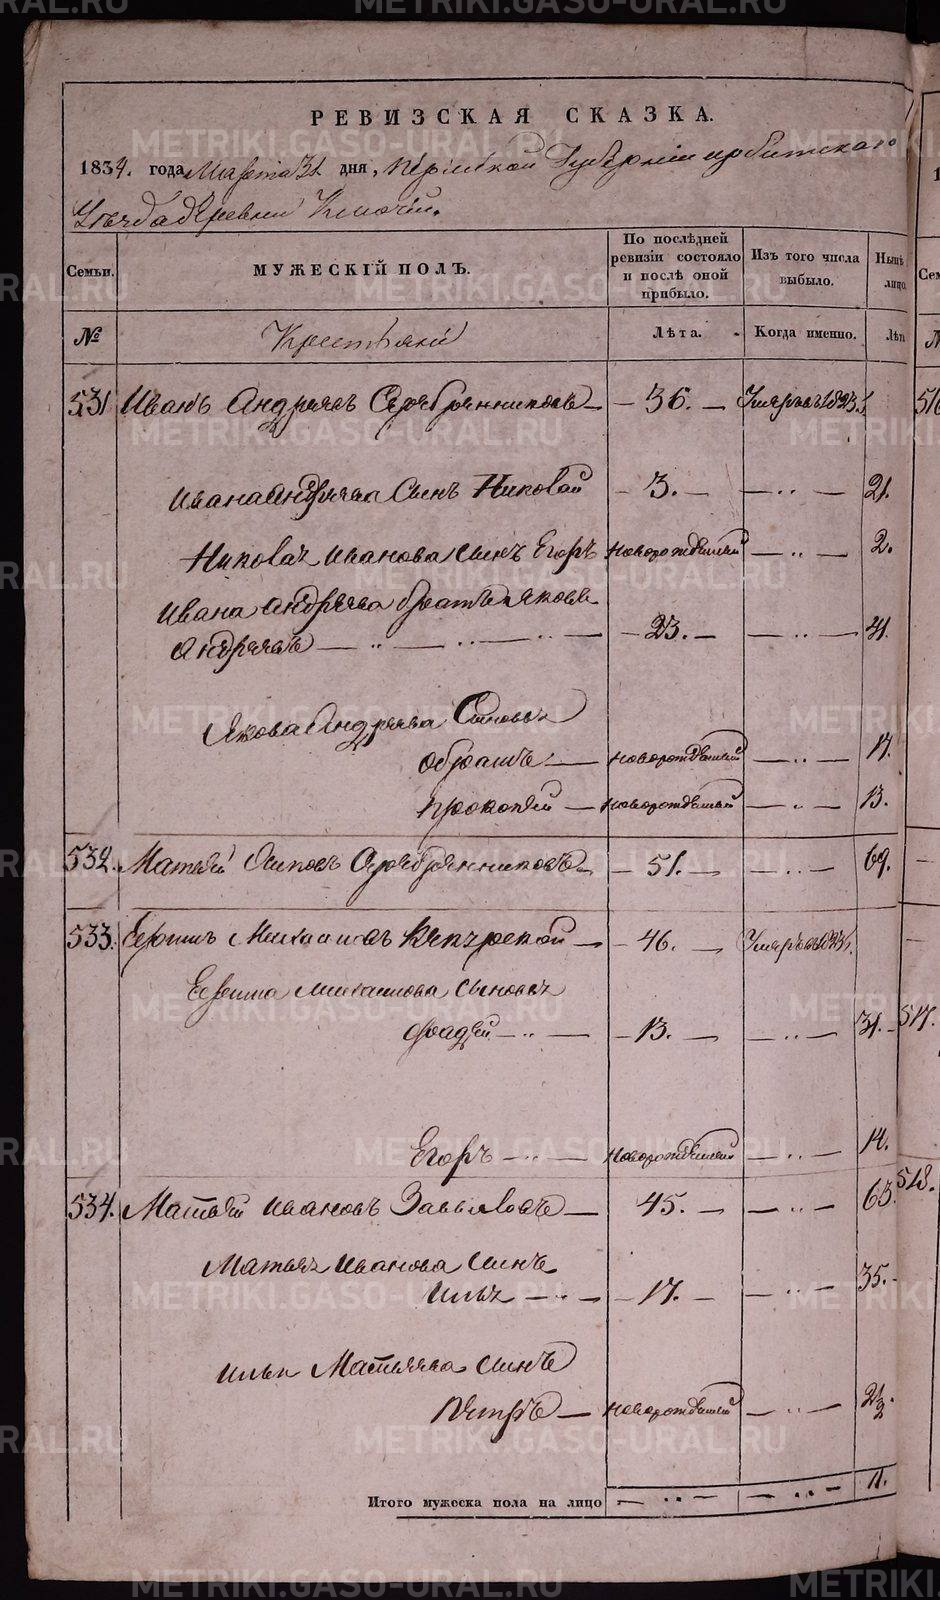 РЕВИЗСКАЯ СКАЗКА.
1834. года Марта 31 дня, Пермской Губернии Ирбитскаго
Уезда деревни Ключи.
Семьи.
МУЖЕСКІЙ ПОЛЪ.
По послѣдней ревизіи состояло и послѣ оной прибыло.
Изъ того числа выбыло.
Нынѣ лицо
№
Крестьяни
Лѣта.
Когда именно.
Лѣт
531 Иванъ Андреевъ Серебренниковъ — 36. — Умеръ въ 1823.
Ивана Андреева Сынъ Николай — 3. — — „ — 21.
Николая Иванова Сынъ Егоръ новорожденный — „ — 2.
Ивана Андреева братъ Яковъ
Андреевъ — „ — „ — „ — — 23. — — „ — 41.
Якова Андреева Сыновья
Обрамъ — новорожденный — „ — 17.
Прокопей — новорожденный — „ — 13.
532. Матвей Осиповъ Серебренниковъ — 51. — — „ — 69.
533. Ефимъ Михайловъ — 46. — Умеръ въ
Ефима Михайлова сыновья
Фадей — „ — — 13. — — „ — 31.
Егоръ — „ — новорожденный — „ — 14.
534. Матвей Ивановъ Завьяловъ — 45. — — „ — 63.
Матвея Иванова сынъ
Илья — „ — — 17. — — „ — 35.
Ильи Матвеева сынъ
Петръ — новорожденный — „ — 2½.
Итого мужеска пола на лицо — „ — — „ — 11.
516
517.
518.
METRIKI.GASO-URAL.RU